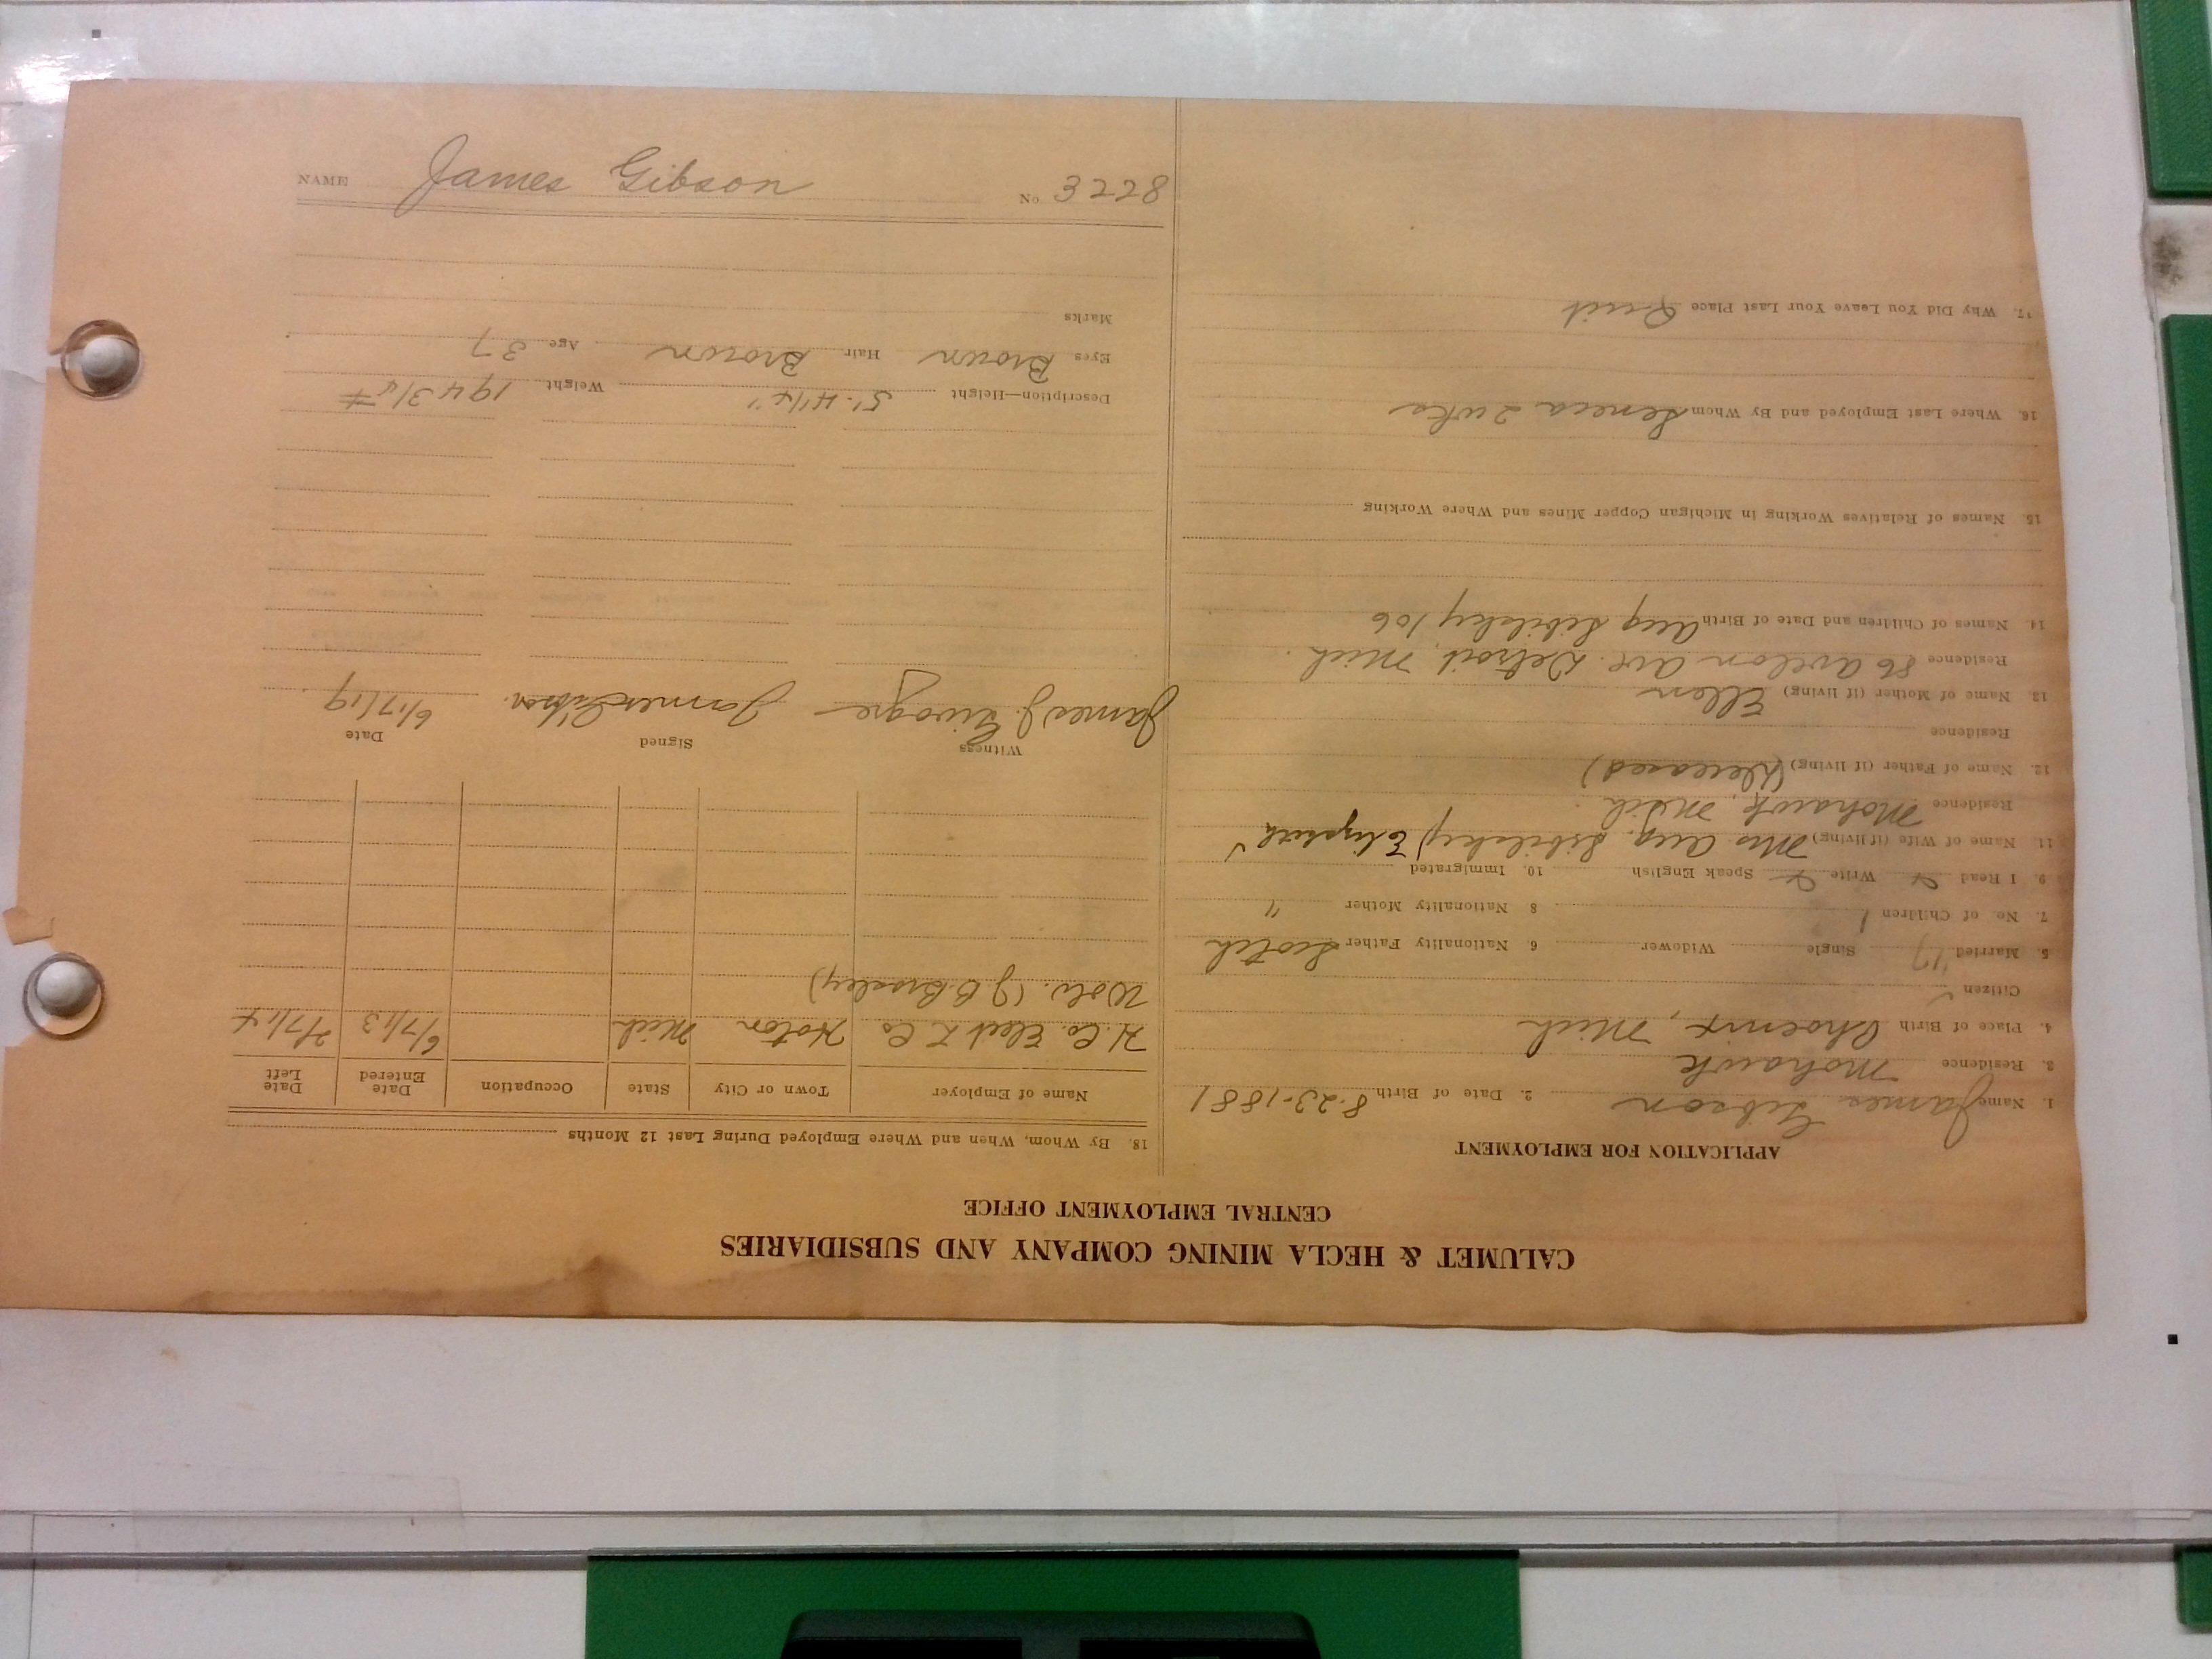 CALUMET & HECLA MINING COMPANY AND SUBSIDIARIES
CENTRAL EMPLOYMENT OFFICE
APPLICATION FOR EMPLOYMENT
1. Name James Gibson 2. Date of Birth 8-23-1881
3. Residence Mohawk
4. Place of Birth Phoenix, Mich
Citizen ✓
5. Married '17 Single Widower 6. Nationality Father Scotch
7. No. of Children 1 8 Nationality Mother "
9. I Read Write Speak English 10. Immigrated
11. Name of Wife (if living) Mrs Aug. Sibilsky) Elizabeth ✓
Residence Mohawk, Mich.
12. Name of Father (if living) (Deceased)
Residence
13. Name of Mother (if living) Ellen
Residence 86 Avelon Ave. Detroit, Mich.
14. Names of Children and Date of Birth Aug Sibilsky 106
15. Names of Relatives Working in Michigan Copper Mines and Where Working
16. Where Last Employed and By Whom Seneca 2 wks
17. Why Did You Leave Your Last Place Quit
18. By Whom, When and Where Employed During Last 12 Months
Name of Employer Town or City State Occupation Date Entered Date Left
H. Co. Elect L Co Hoton Mich 6/7/13 2/7/14
(J B Brasley)
Witness Signed Date
James J. James Gibson. 6/17/19
Description—Height 5'-4 1/4" Weight 194 3/4 #
Eyes Brown Hair Brown Age 37
Marks
NAME James Gibson No. 3228